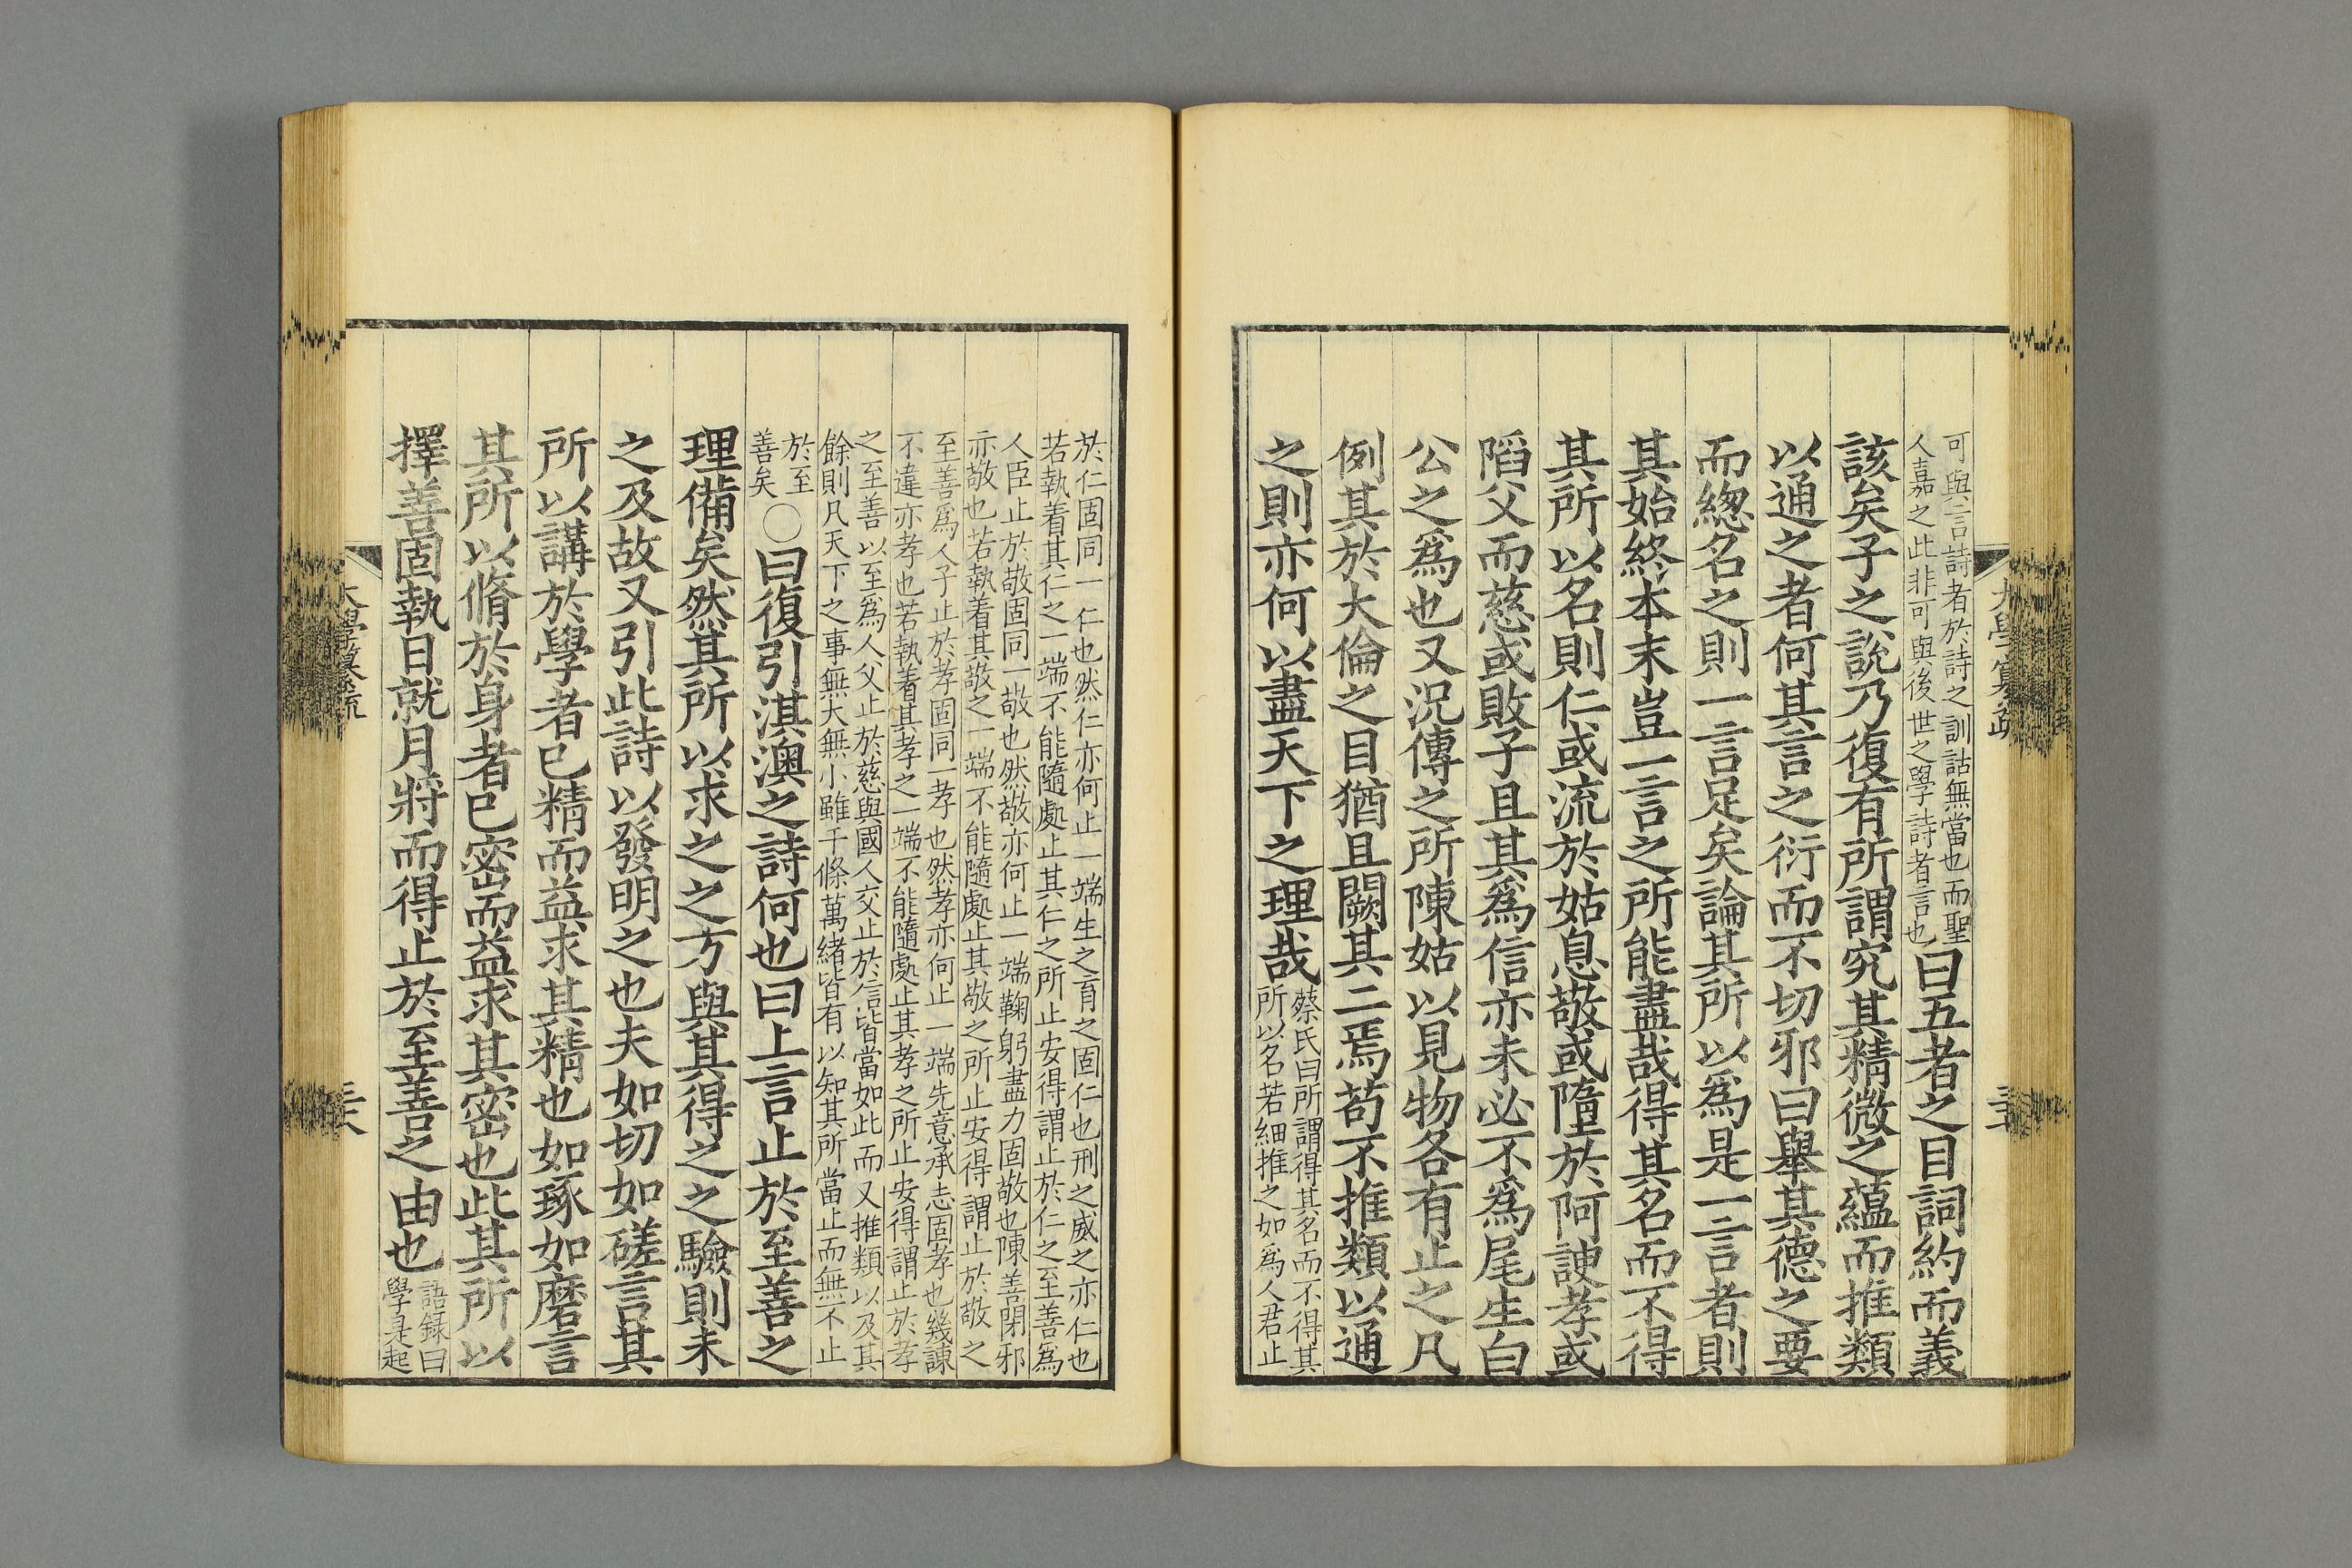 可與言詩者於詩之訓詁無當也而聖
人嘉之此非可與後世之學詩者言也
曰五者之目詞約而義
該矣子之說乃復有所謂究其精微之蘊而推類
以通之者何其言之衍而不切邪曰舉其德之要
而緫名之則一言足矣論其所以爲是一言者則
其始終本末豈一言之所能盡哉得其名而不得
其所以名則仁或流於姑息敬或墮於阿諛孝或
陷父而慈或敗子且其爲信亦未必不爲尾生白
公之爲也又況傳之所陳姑以見物各有止之凡
例其於大倫之目猶且闕其二焉苟不推類以通
之則亦何以盡天下之理哉
蔡氏曰所謂得其名而不得其
所以名若細推之如爲人君止
於仁固同一仁也然仁亦何止一端生之育之固仁也刑之威之亦仁也
若執着其仁之一端不能隨處止其仁之所止安得謂止於仁之至善爲
人臣止於敬固同一敬也然敬亦何止一端鞠躬盡力固敬也陳善閉邪
亦敬也若執着其敬之一端不能隨處止其敬之所止安得謂止於敬之
至善爲人子止於孝固同一孝也然孝亦何止一端先意承志固孝也幾諫
不違亦孝也若執着其孝之一端不能隨處止其孝之所止安得謂止於孝
之至善以至爲人父止於慈與國人交止於信皆當如此而又推類以及其
餘則凡天下之事無大無小雖千條萬緒皆有以知其所當止而無不止
於至
善矣
○曰復引淇澳之詩何也曰上言止於至善之
理備矣然其所以求之之方與其得之之驗則未
之及故又引此詩以發明之也夫如切如磋言其
所以講於學者已精而益求其精也如琢如磨言
其所以脩於身者已密而益求其密也此其所以
擇善固執日就月將而得止於至善之由也
語録曰
學是起